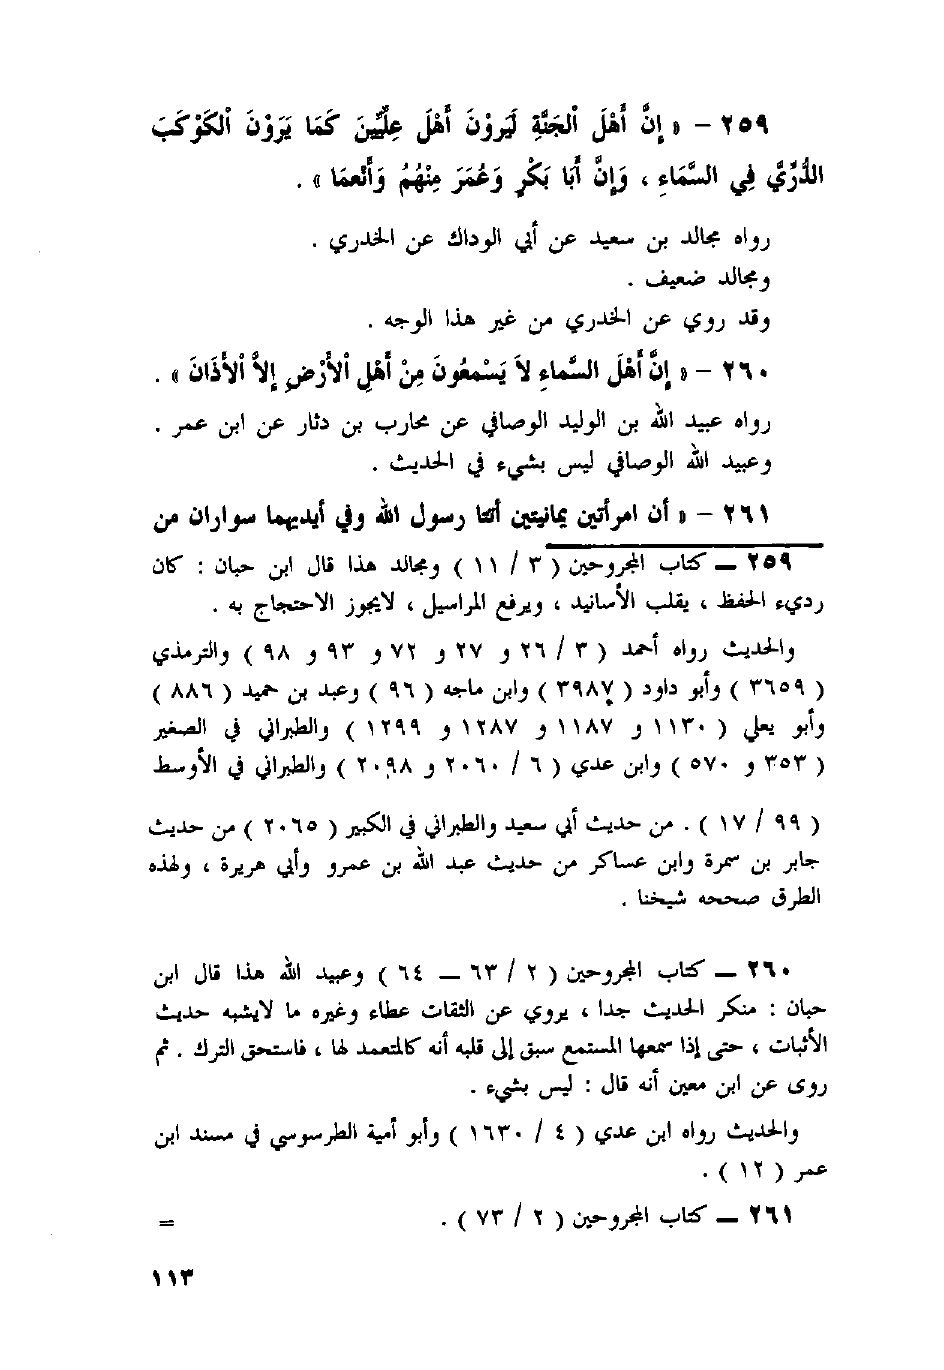 ٢٥٩ – « إِنَّ أَهْلَ الْجَنَّةِ لَيَرَوْنَ أَهْلَ عِلِّيِّينَ كَمَا يَرَوْنَ الْكَوْكَبَ
الدُّرِّيَّ فِي السَّمَاءِ ، وَإِنَّ أَبَا بَكْرٍ وَعُمَرَ مِنْهُمْ وَأَنْعَمَا » .
رواه مجالد بن سعيد عن أبي الوداك عن الخدري .
ومجالد ضعيف .
وقد روي عن الخدري من غير هذا الوجه .
٢٦٠ – « إِنَّ أَهْلَ السَّمَاءِ لاَ يَسْمَعُونَ مِنْ أَهْلِ الْأَرْضِ إِلاَّ الْأَذَانَ » .
رواه عبيد الله بن الوليد الوصافي عن محارب بن دثار عن ابن عمر .
وعبيد الله الوصافي ليس بشيء في الحديث .
٢٦١ – « أن امرأتين يمانيتين أتتا رسول الله وفي أيديهما سواران من
٢٥٩ – كتاب المجروحين ( ٣ / ١١ ) ومجالد هذا قال ابن حبان : كان
رديء الحفظ ، يقلب الأسانيد ، ويرفع المراسيل ، لايجوز الاحتجاج به .
والحديث رواه أحمد ( ٣ / ٢٦ و ٢٧ و ٧٢ و ٩٣ و ٩٨ ) والترمذي
( ٣٦٥٩ ) وأبو داود ( ٣٩٨٧ ) وابن ماجه ( ٩٦ ) وعبد بن حميد ( ٨٨٦ )
وأبو يعلي ( ١١٣٠ و ١١٨٧ و ١٢٨٧ و ١٢٩٩ ) والطبراني في الصغير
( ٣٥٣ و ٥٧٠ ) وابن عدي ( ٦ / ٢٠٦٠ و ٢٠٩٨ ) والطبراني في الأوسط
( ٩٩ / ١٧ ) . من حديث أبي سعيد والطبراني في الكبير ( ٢٠٦٥ ) من حديث
جابر بن سمرة وابن عساكر من حديث عبد الله بن عمرو وأبي هريرة ، ولهذه
الطرق صححه شيخنا .
٢٦٠ – كتاب المجروحين ( ٢ / ٦٣ – ٦٤ ) وعبيد الله هذا قال ابن
حبان : منكر الحديث جدا ، يروي عن الثقات عطاء وغيره ما لايشبه حديث
الأثبات ، حتى إذا سمعها المستمع سبق إلى قلبه أنه كالمتعمد لها ، فاستحق الترك . ثم
روى عن ابن معين أنه قال : ليس بشيء .
والحديث رواه ابن عدي ( ٤ / ١٦٣٠ ) وأبو أمية الطرسوسي في مسند ابن
عمر ( ١٢ ) .
٢٦١ – كتاب المجروحين ( ٢ / ٧٣ ) . =
١١٣